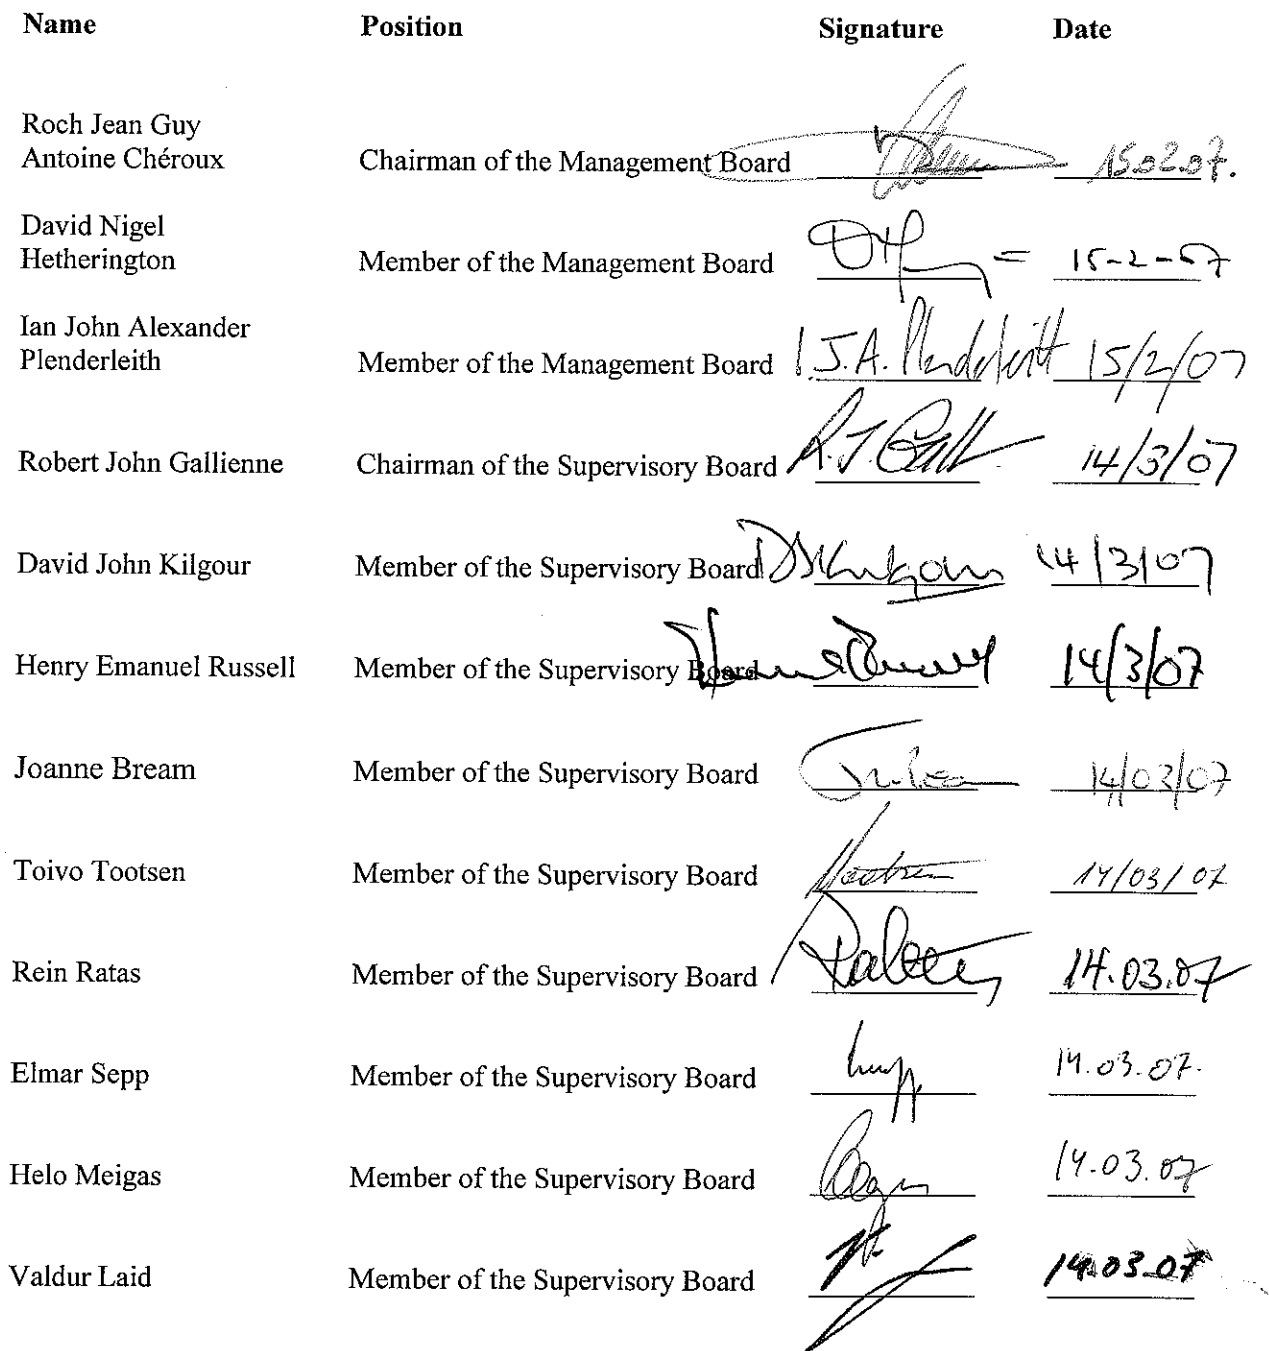 Name Position Signature Date
Roch Jean Guy
Antoine Chéroux Chairman of the Management Board 15.02.07.
David Nigel
Hetherington Member of the Management Board 15-2-07
Ian John Alexander
Plenderleith Member of the Management Board I.J.A. Plenderleith 15/2/07
Robert John Gallienne Chairman of the Supervisory Board R.J. 14/3/07
David John Kilgour Member of the Supervisory Board DJKilgour 14/3/07
Henry Emanuel Russell Member of the Supervisory Board 14/3/07
Joanne Bream Member of the Supervisory Board 14/03/07
Toivo Tootsen Member of the Supervisory Board 14/03/07
Rein Ratas Member of the Supervisory Board 14.03.07
Elmar Sepp Member of the Supervisory Board 14.03.07.
Helo Meigas Member of the Supervisory Board 14.03.07
Valdur Laid Member of the Supervisory Board 14.03.07